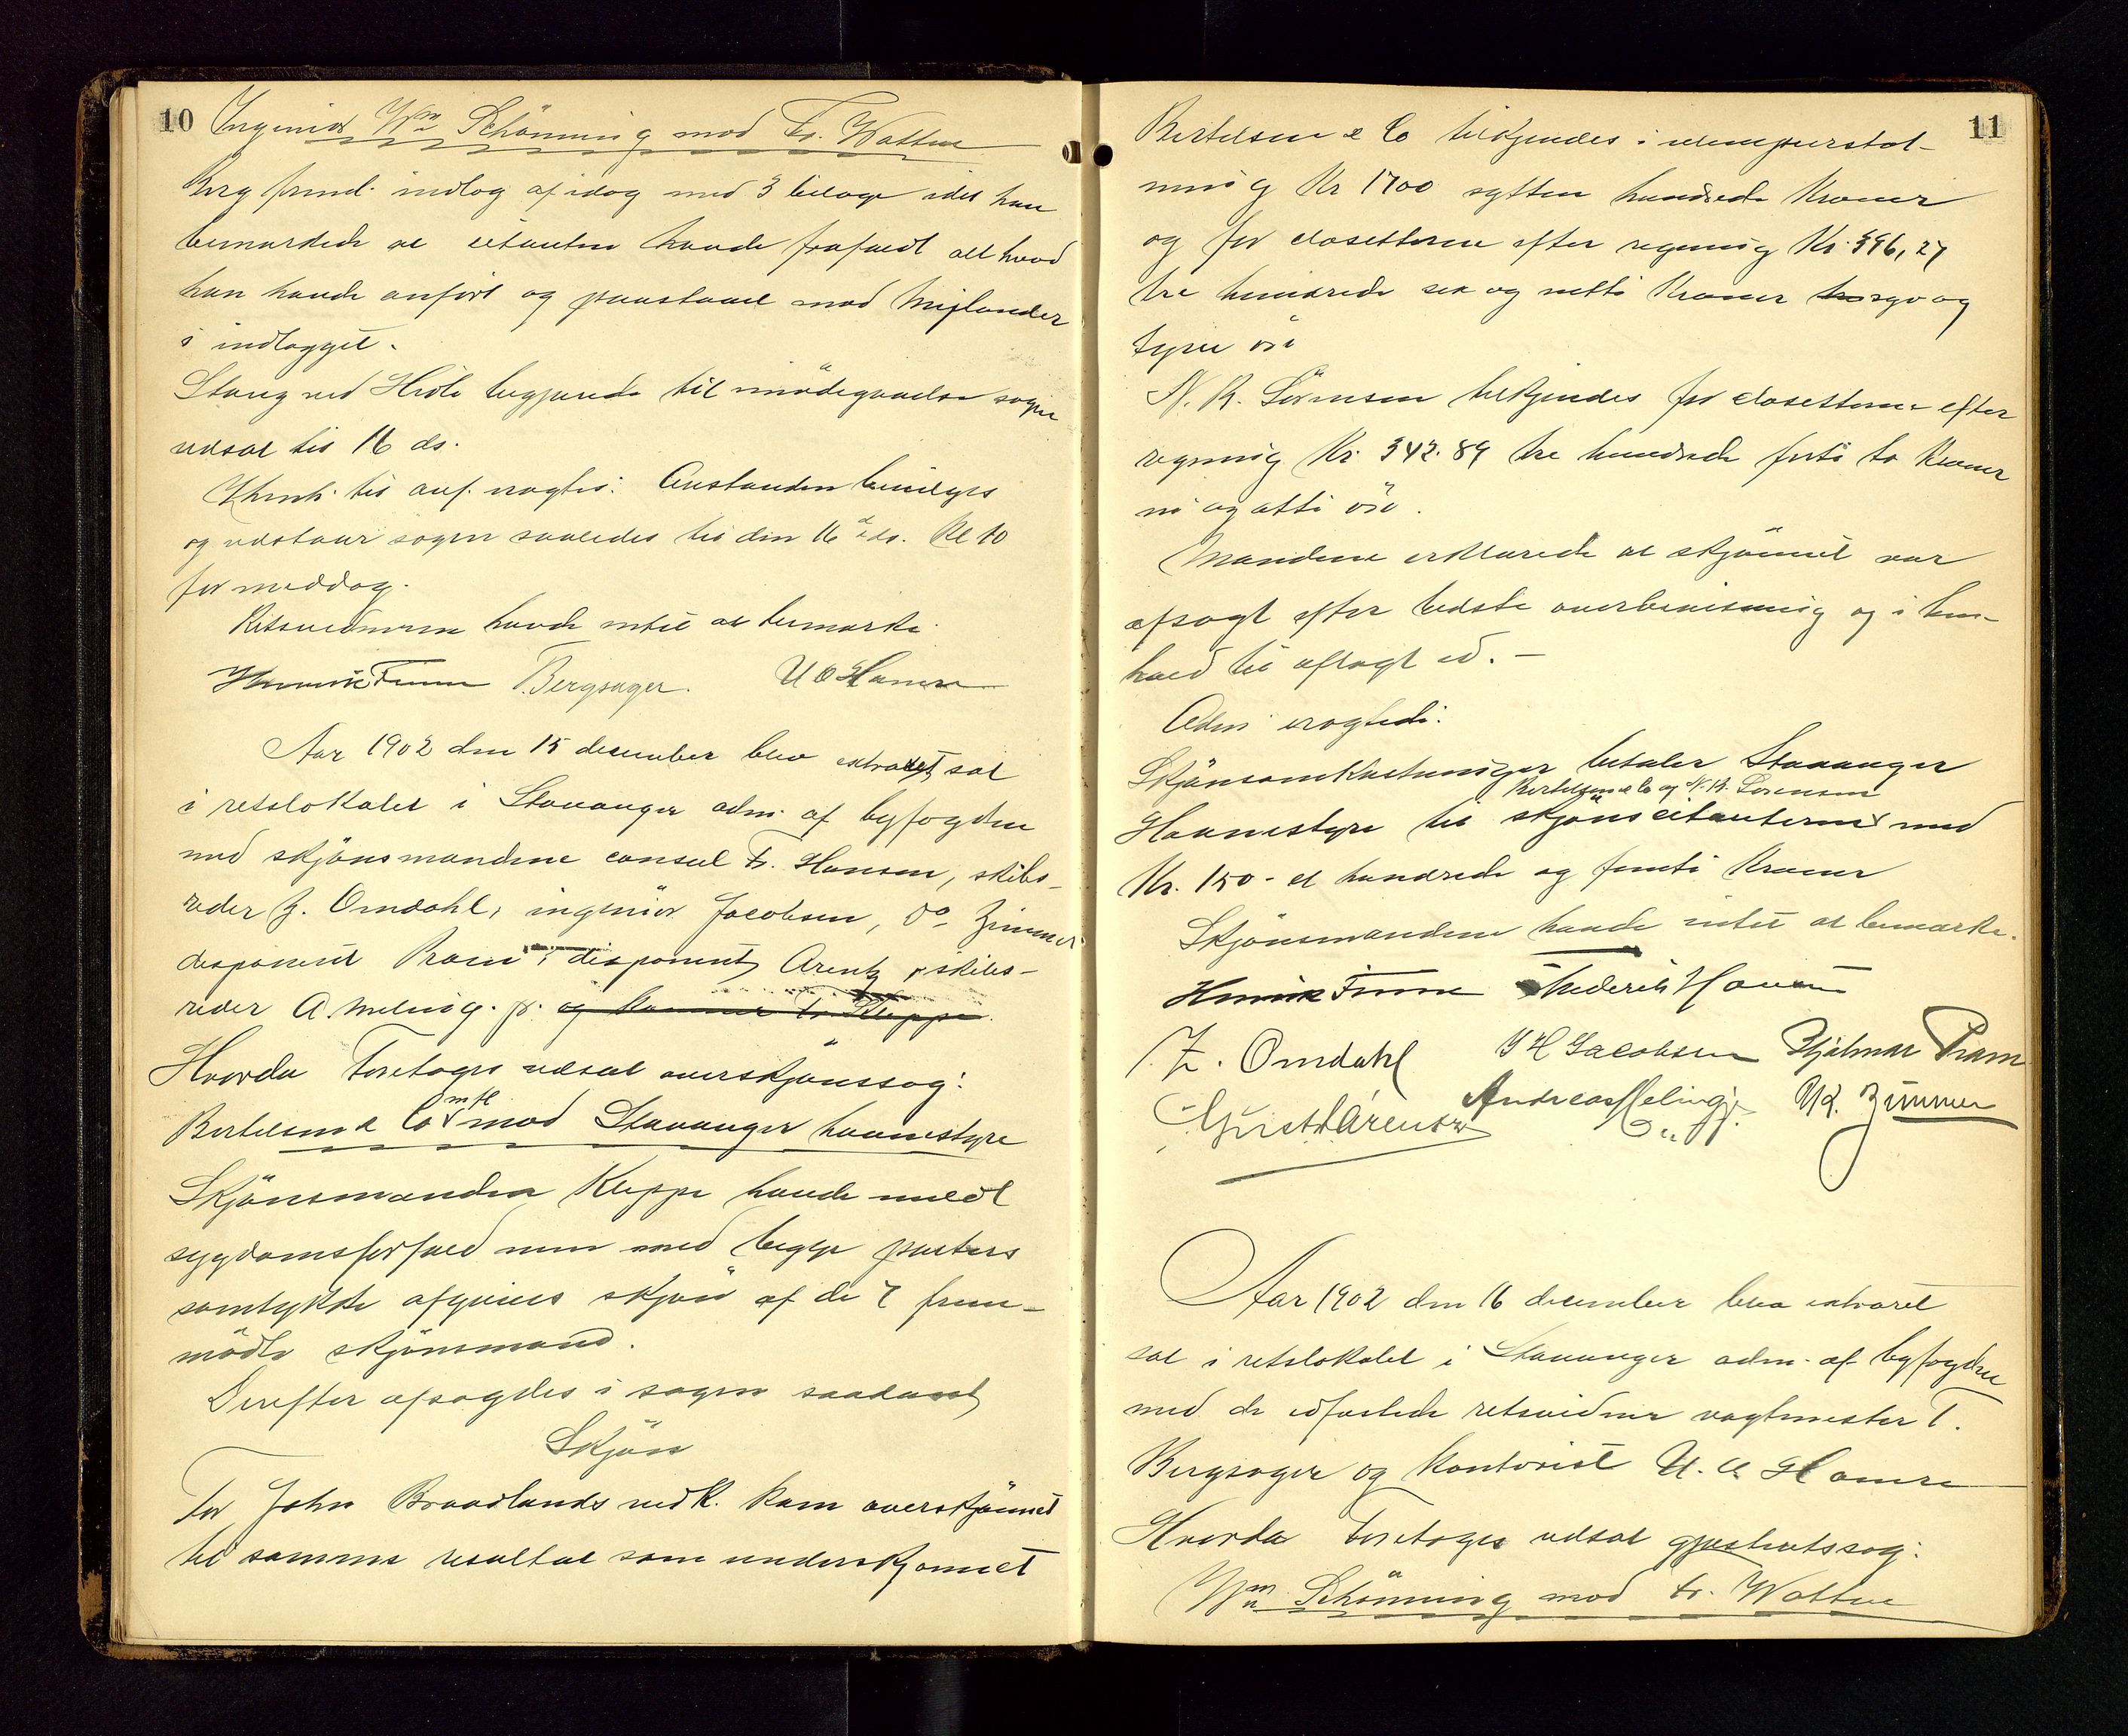 10
Ingeniør Wm Schönning mod Fr. Wattne
Berg freml. indlæg af idag med 3 bilage idet han
bemærkede at citanten havde frafaldt alt hvad
han havde anført og paastaaet mod Mislander
i indlægget.
Stang ved Hirle begjærede til imødegaaelse sagen
udsat til 16 ds.
Thrmh. tis anf. eragtes: Anstanden bevilges
og udstaar sagen saaledes til den 16de ds. Kl 10
formiddag.
Retsvidnerne havde intet at bemærke.
Henrik Finne Bergsager. U O Hamre
Aar 1902 den 15 december blev extraret sat
i retslokalet i Stavanger adm. af byfogden
med skjönsmændene consul Fr. Hansen, skibs-
reder Z. Omdahl, ingeniør Jacobsen, do Zimmer
disponent Pram, disponent Arentz, skibs-
reder A. Meling. jr. og kommer Fr Kleppe.
Hvorda Foretoges udsat overskjönssag:
Bertelsen & Co m fl mod Stavanger havnestyre
Skjönsmanden Kleppe havde meldt
sygdomsforfald men med begge parters
samtykke afgives skjön af de 7 frem-
mödte skjönsmænd.
Derefter afsagdes i sagen saadant
Skjön
For John Braadlands vedk. kom overskjönnet
til samme resultat som underskjönnet
11
Bertelsen & Co tilkjendes i ulempeerstat-
ning Kr 1700 sytten hundrede Kroner
og for closetterne efter regning Kr. 396,27
tre hundrede sex og nitti Kroner tre syv og
tyve øre
N. R. Sörensen tilkjendes for closetterne efter
regning Kr. 342.89 tre hundrede forti to Kroner
ni og otti øre.
Mændene erklærede at skjönnet var
afsagt efter bedste overbevisning og i hen-
hold til aflagt ed. —
Adm. eragtede:
Skjönsomkostninger betaler Stavanger
Bertelsen & Co og N. R. Sörensen
Havnestyre til skjönscitanterne med
Kr. 150 - et hundrede og femti Kroner
Skjönsmændene havde intet at bemærke.
Henrik Finne Frederik Hansen
Z. Omdahl J H Jacobsen Hjalmar Pram
Christ Arentz Andreas Meling jr. Zimmer
Aar 1902 den 16 december blev extraret
sat i retslokalet i Stavanger adm. af byfogden
med de edfæstede retsvidner vagtmester T.
Bergsager og kontorist U. O. Hamre
Hvorda Foretoges udsat gjesteretssag:
Wm Schönning mod Fr. Wattne